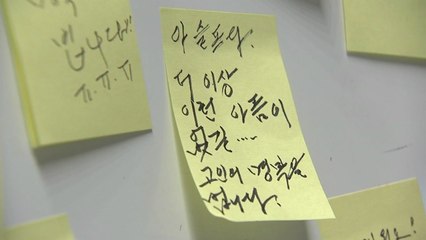 빕니다!!
ㅠ.ㅠ.ㅠ
아 슬프다.
더 이상
이런 아픔이
없길....
고인의 명복을
빕니다.